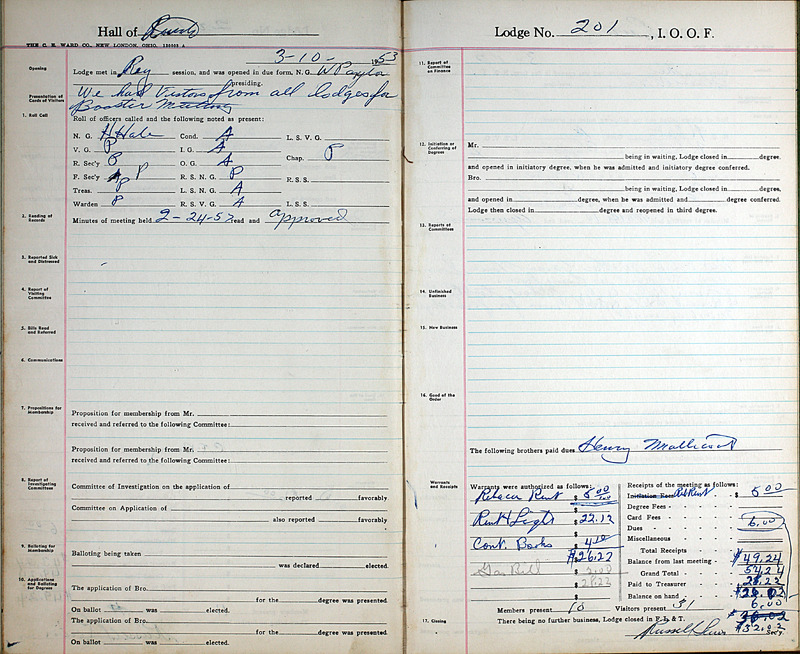 Hall of
THE C. E. WARD CO., NEW LONDON, OHIO,
3-10- 1953
Opening
Lodge met in Reg session, and was opened in due form, N. G. W Paxton
presiding.
Presentation of
Cards of Visitors
We had Visitors from all lodges for
Booster Meeting
1. Roll Call
Roll of officers called and the following noted as present:
N. G. H Hale Cond. A L. S. V. G.
V. G. P I. G. A
Chap. P
R. Sec'y P O. G. A
F. Sec'y P R. S. N. G. P R. S. S.
Treas. P L. S. N. G. A
Warden P R. S. V. G. A L. S. S.
2. Reading of
Records
Minutes of meeting held 2-24-53 read and approved
3. Reported Sick
and Distressed
4. Report of
Visiting
Committee
5. Bills Read
and Referred
6. Communications
7. Propositions for
Membership
Proposition for membership from Mr.
received and referred to the following Committee:
Proposition for membership from Mr.
received and referred to the following Committee:
8. Report of
Investigating
Committees
Committee of Investigation on the application of
reported favorably.
Committee on Application of
also reported favorably.
9. Balloting for
Membership
Balloting being taken
was declared elected.
10. Applications
and Balloting
for Degrees
The application of Bro.
for the degree was presented.
On ballot was elected.
The application of Bro.
for the degree was presented.
On ballot was elected.
Lodge No. 201, I. O. O. F.
11. Report of
Committee
on Finance
12. Initiation or
Conferring of
Degrees
Mr.
being in waiting, Lodge closed in degree,
and opened in initiatory degree, when he was admitted and initiatory degree conferred.
Bro.
being in waiting, Lodge closed in degree,
and opened in degree, when he was admitted and degree conferred.
Lodge then closed in degree and reopened in third degree.
13. Reports of
Committees
14. Unfinished
Business
15. New Business
16. Good of the
Order
The following brothers paid dues Henry
Warrants
and Receipts
Warrants were authorized as follows:
Rebecca Rent $ 5.00
Rent & Lights $ 22.12
Cont. Books $ 4.10
$26.22
Gas Bill $ 2.00
$ 28.22
Receipts of the meeting as follows:
Initiation Fees Reb Rent $ 5.00
Degree Fees
Card Fees
Dues 6.00
Miscellaneous
Total Receipts
Balance from last meeting $49.24
Grand Total 54.24
Paid to Treasurer 28.22
Balance on hand $26.02
6.00
$32.02
Members present 10 Visitors present 31
17. Closing
There being no further business, Lodge closed in F. L. & T.
Russell Lewis Sec'y.